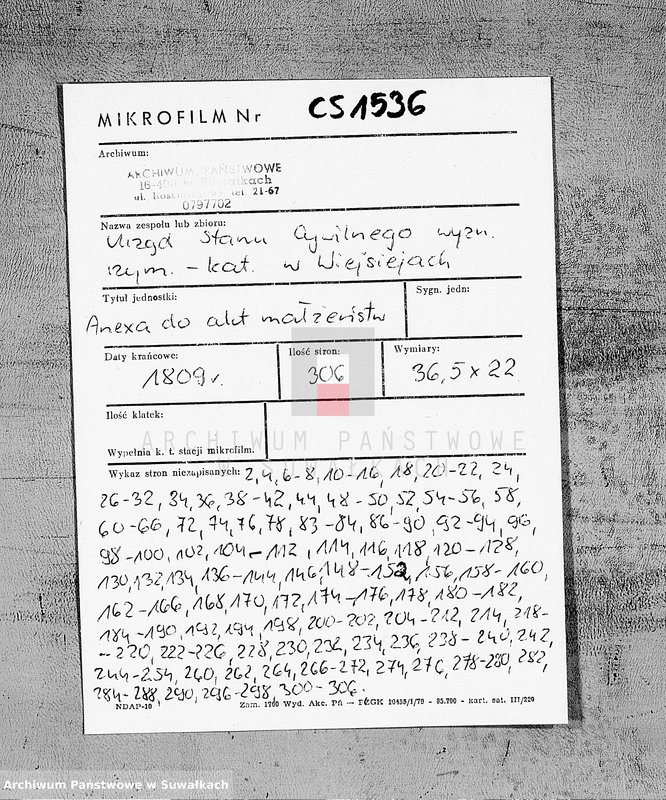 MIKROFILM Nr CS1536
Archiwum:
ARCHIWUM PAŃSTWOWE
16-400 w Suwałkach
ul. Kości tel. 21-67
0797702
Nazwa zespołu lub zbioru:
Urząd Stanu Cywilnego wyzn.
rzym. - kat. w Wiejsiejach
Tytuł jednostki:
Sygn. jedn:
Anexa do akt małżeństw
Daty krańcowe:
Ilość stron:
Wymiary:
1809 r.
306
36,5 x 22
Ilość klatek:
ARCHIWUM PAŃSTWOWE
W SUWAŁKACH
Wypełnia k. t. stacji mikrofilm.
Wykaz stron niezapisanych: 2, 4, 6-8, 10-16, 18, 20-22, 24,
26-32, 34, 36, 38-42, 44, 48-50, 52, 54-56, 58,
60-66, 72, 74, 76, 78, 83-84, 86-90, 92-94, 96,
98-100, 102, 104-112, 114, 116, 118, 120-128,
130, 132, 134, 136-144, 146, 148-152, 156, 158-160,
162-166, 168, 170, 172, 174-176, 178, 180-182,
184-190, 192, 194, 198, 200-202, 204-212, 214, 218-
-220, 222-226, 228, 230, 232, 234, 236, 238-240, 242,
244-254, 260, 262, 264, 266-272, 274, 276, 278-280, 282,
284-288, 290, 296-298, 300-306.
NDAP-10 Zam. 1760 Wyd. Akc. Pń - PZGK 10458/I/79 - 85.700 - kart. sat. III/220
Archiwum Państwowe w Suwałkach